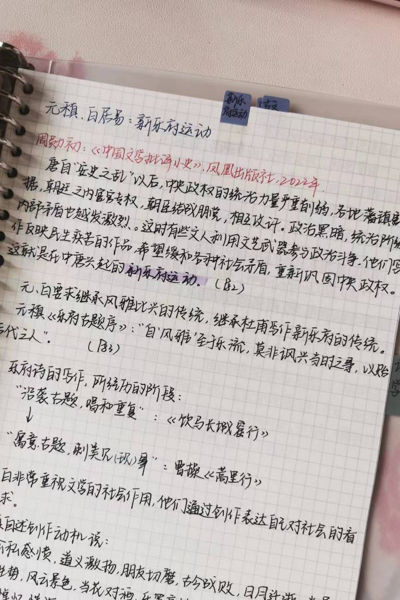 新乐府运动
元稹、白居易：新乐府运动
周勋初：《中国文学批评小史》，凤凰出版社，2022年.
唐自“安史之乱”以后，中央政权的统治力量严重削弱，各地藩镇割
据，朝廷之内宦官专权，朝臣结成朋党，相互攻讦，政治黑暗，统治阶
内部矛盾也越发激烈。这时有些文人利用文艺武器参与政治斗争，他们写
作反映民生疾苦的作品，希望缓和各种社会矛盾，重新巩固中央政权。
这就是在中唐兴起的新乐府运动.（P82）
元、白要求继承风雅比兴的传统，继承杜甫写作新乐府的传统。
元稹《乐府古题序》：“自‘风雅’至于乐流，莫非讽兴当时之事，以贻
后代之人”.（P83）
乐府诗的写作，所经历的阶段：
“沿袭古题，唱和重复”：《饮马长城窟行》
↓
“寓意古题，刺美见(现)事”：曹操《蒿里行》
白非常重视文学的社会作用，他们通过创作表达自己对社会的看
求。
自述创作动机说：
公私感愤，道义激扬，朋友切磨，古今成败，日月迁逝，
风云景色，当花对酒，